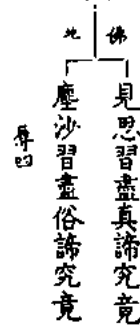 佛地
見思習盡真諦究竟
塵沙習盡俗諦究竟